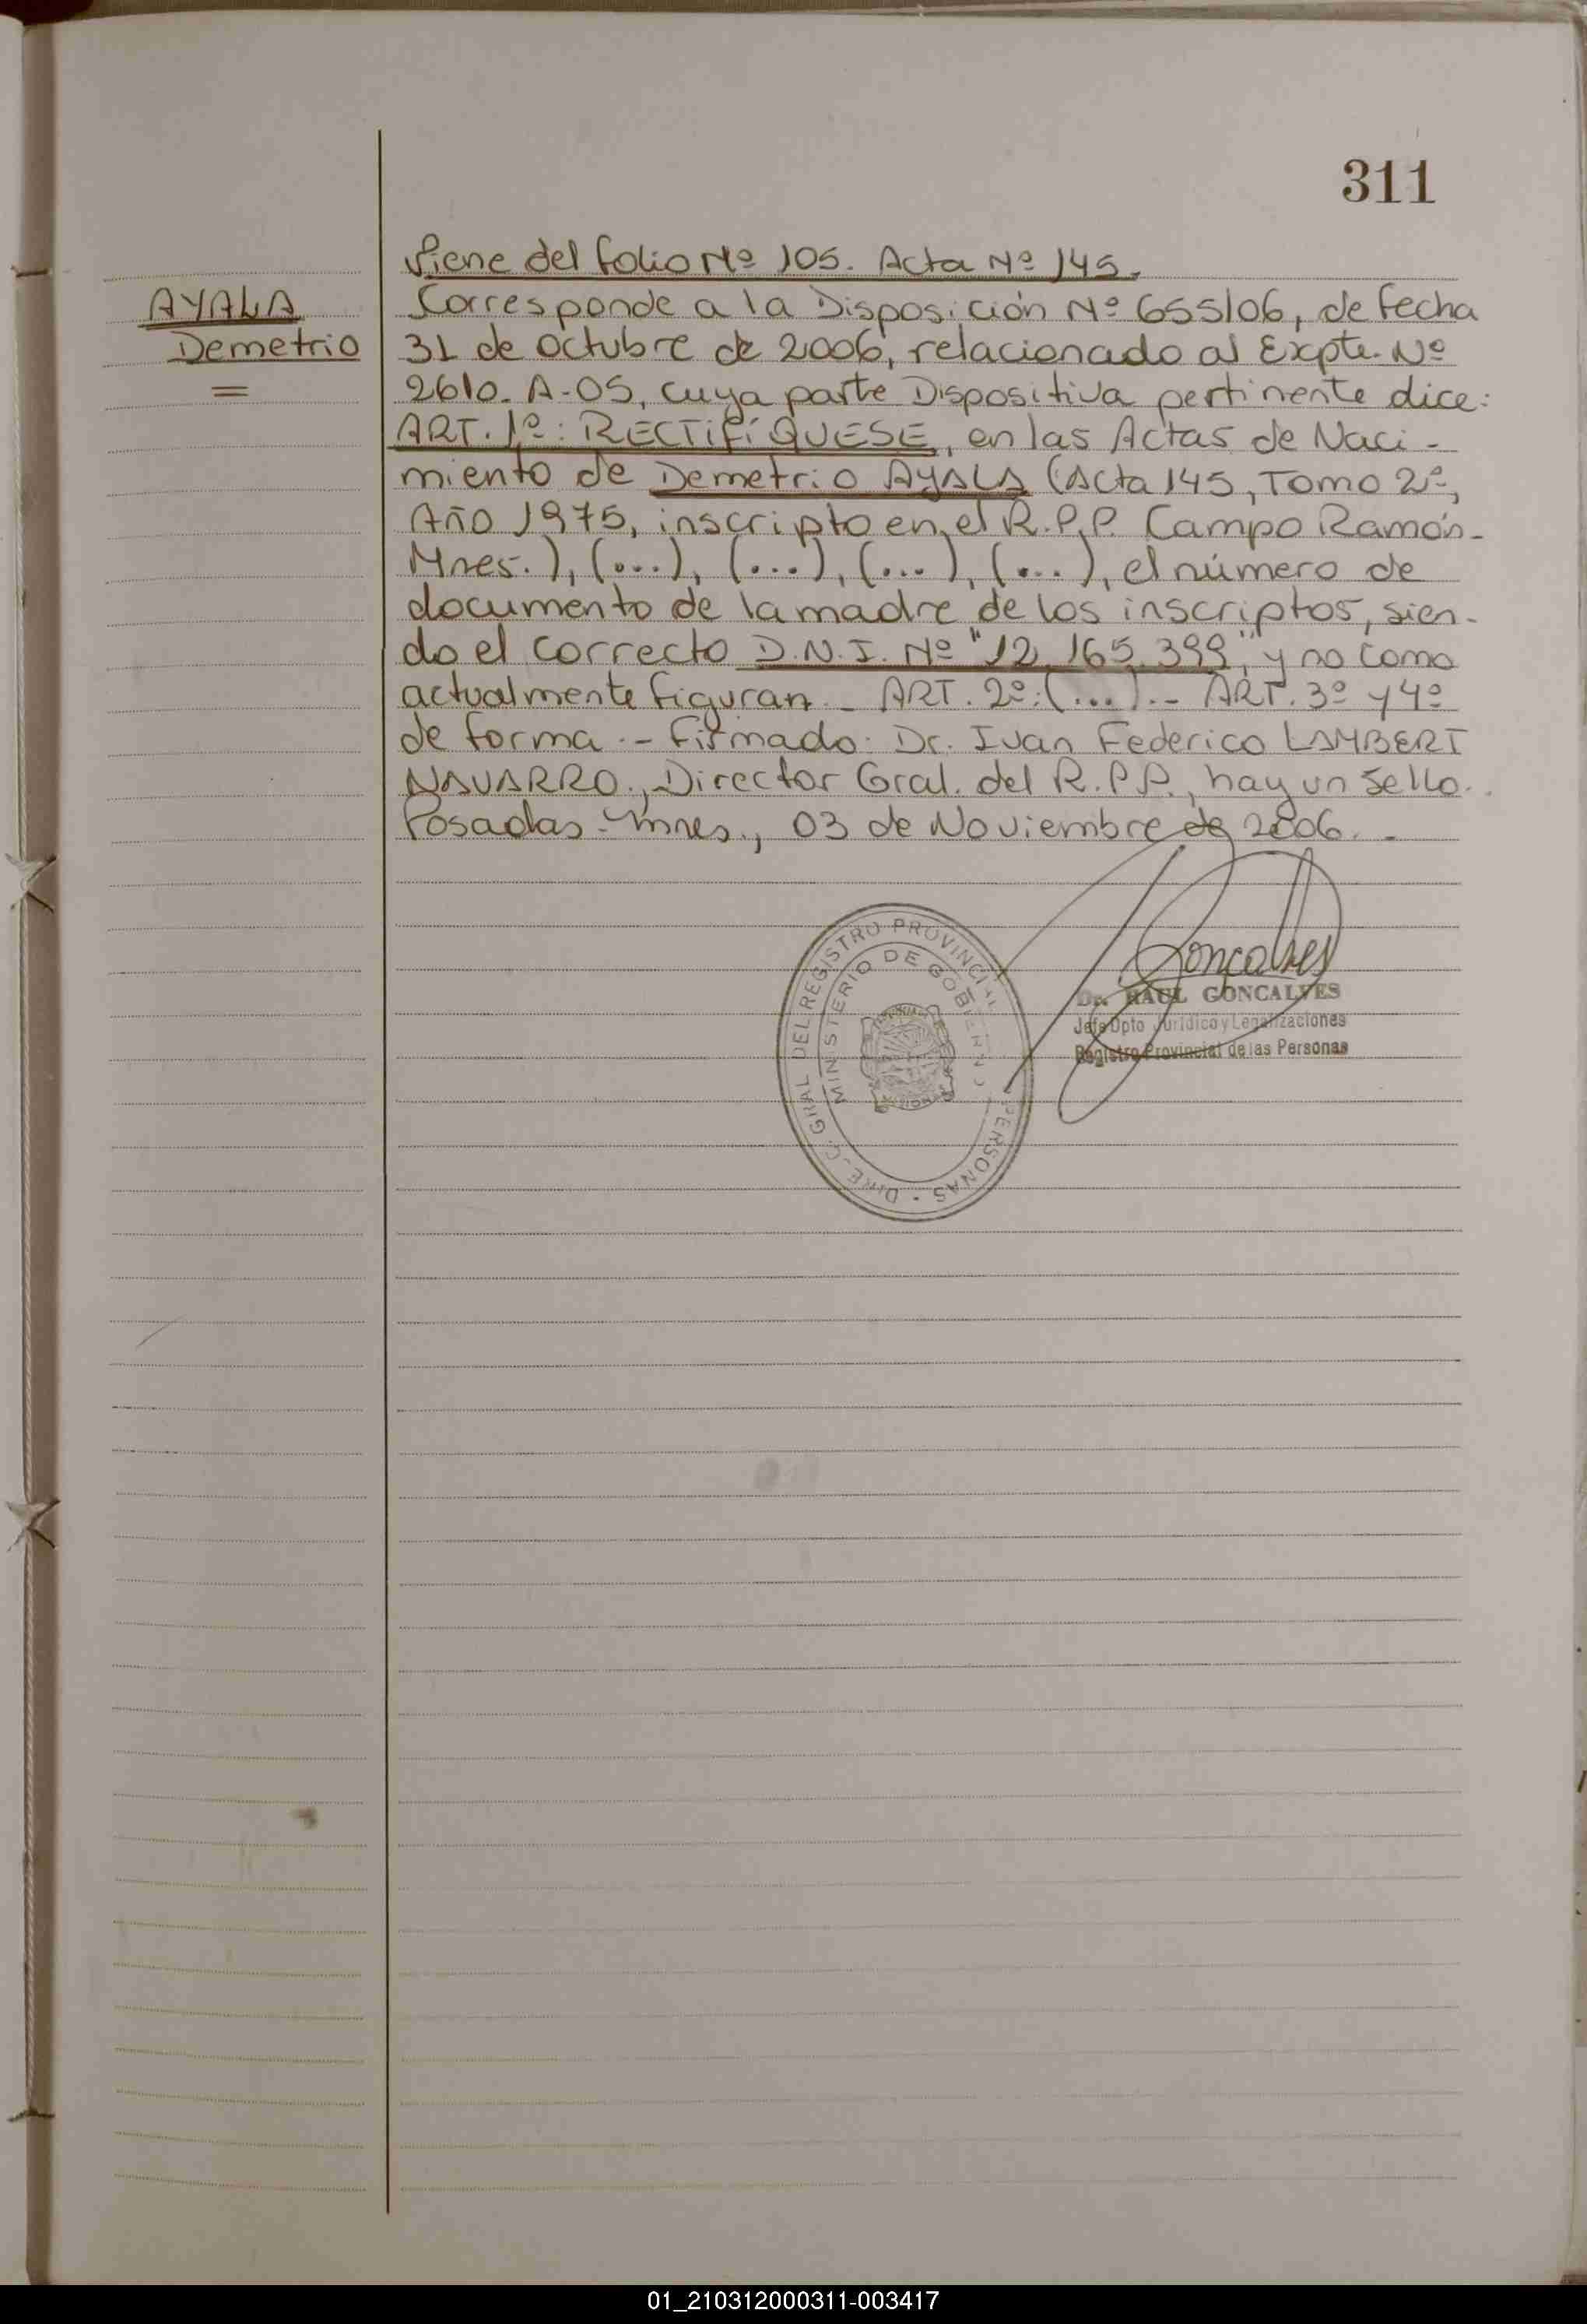 311
Viene del folio Nº 105. Acta Nº 145.
AYALA
Demetrio
=
Corresponde a la Disposición Nº 655/06, de fecha
31 de octubre de 2006, relacionado al Expte. Nº
2610. A-05, cuya parte Dispositiva pertinente dice:
ART. 1º: RECTIFÍQUESE, en las Actas de Naci-
miento de Demetrio AYALA (Acta 145, Tomo 2º,
Año 1975, inscripto en el R.P.P. Campo Ramón-
Mnes.), (...), (...), (...), (...), el número de
documento de la madre de los inscriptos, sien-
do el correcto D.N.I. Nº "12.165.399", y no como
actualmente figuran.- ART. 2º: (...).- ART. 3º y 4º
de forma.- Firmado: Dr. Ivan Federico LAMBERT
NAVARRO., Director Gral. del R.P.P., hay un sello.
Posadas-Mnes., 03 de Noviembre de 2006.-
Goncalves
Dr. RAUL GONCALVES
Jefe Dpto Jurídico y Legalizaciones
Registro Provincial de las Personas
GRAL DEL REGISTRO PROVINCIAL PERSONAS
MINISTERIO DE GOBIERNO
01_210312000311-003417